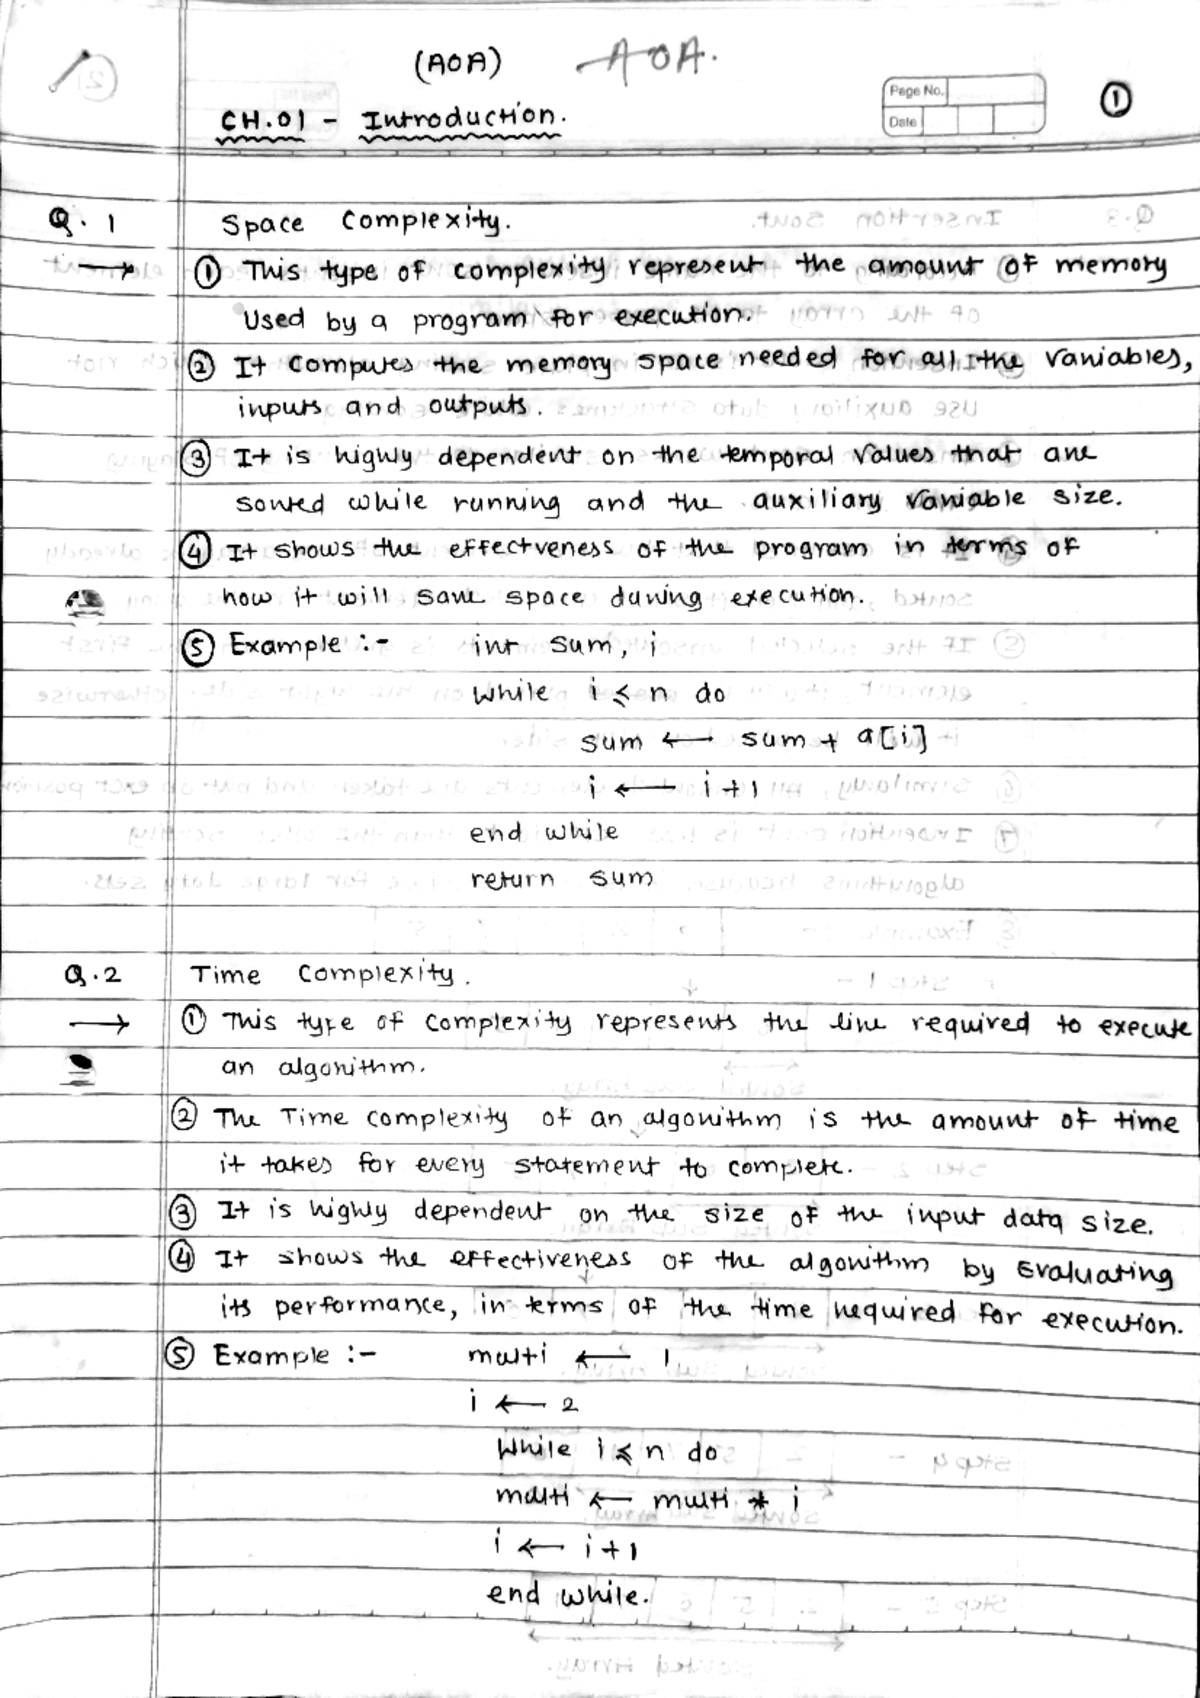 (AOA) AOA.
Page No.
Date
1
CH.01 - Introduction.
Q. 1 Space Complexity.
→ ① This type of complexity represent the amount of memory
used by a program for execution.
② It computes the memory space needed for all the variables,
inputs and outputs.
③ It is highly dependent on the temporal values that are
sorted while running and the auxiliary variable size.
④ It shows the effectveness of the program in terms of
how it will save space during execution.
⑤ Example :- int sum, i
while i ≤ n do
sum ← sum + a[i]
i ← i+1
end while
return sum
Q.2 Time Complexity.
→ ① This type of complexity represents the line required to execute
an algorithm.
② The Time complexity of an algorithm is the amount of time
it takes for every statement to complete.
③ It is highly dependent on the size of the input data size.
④ It shows the effectiveness of the algorithm by Evaluating
its performance, in terms of the time required for execution.
⑤ Example :- multi ← 1
i ← 2
While i ≤ n do
multi ← multi * i
i ← i+1
end while.